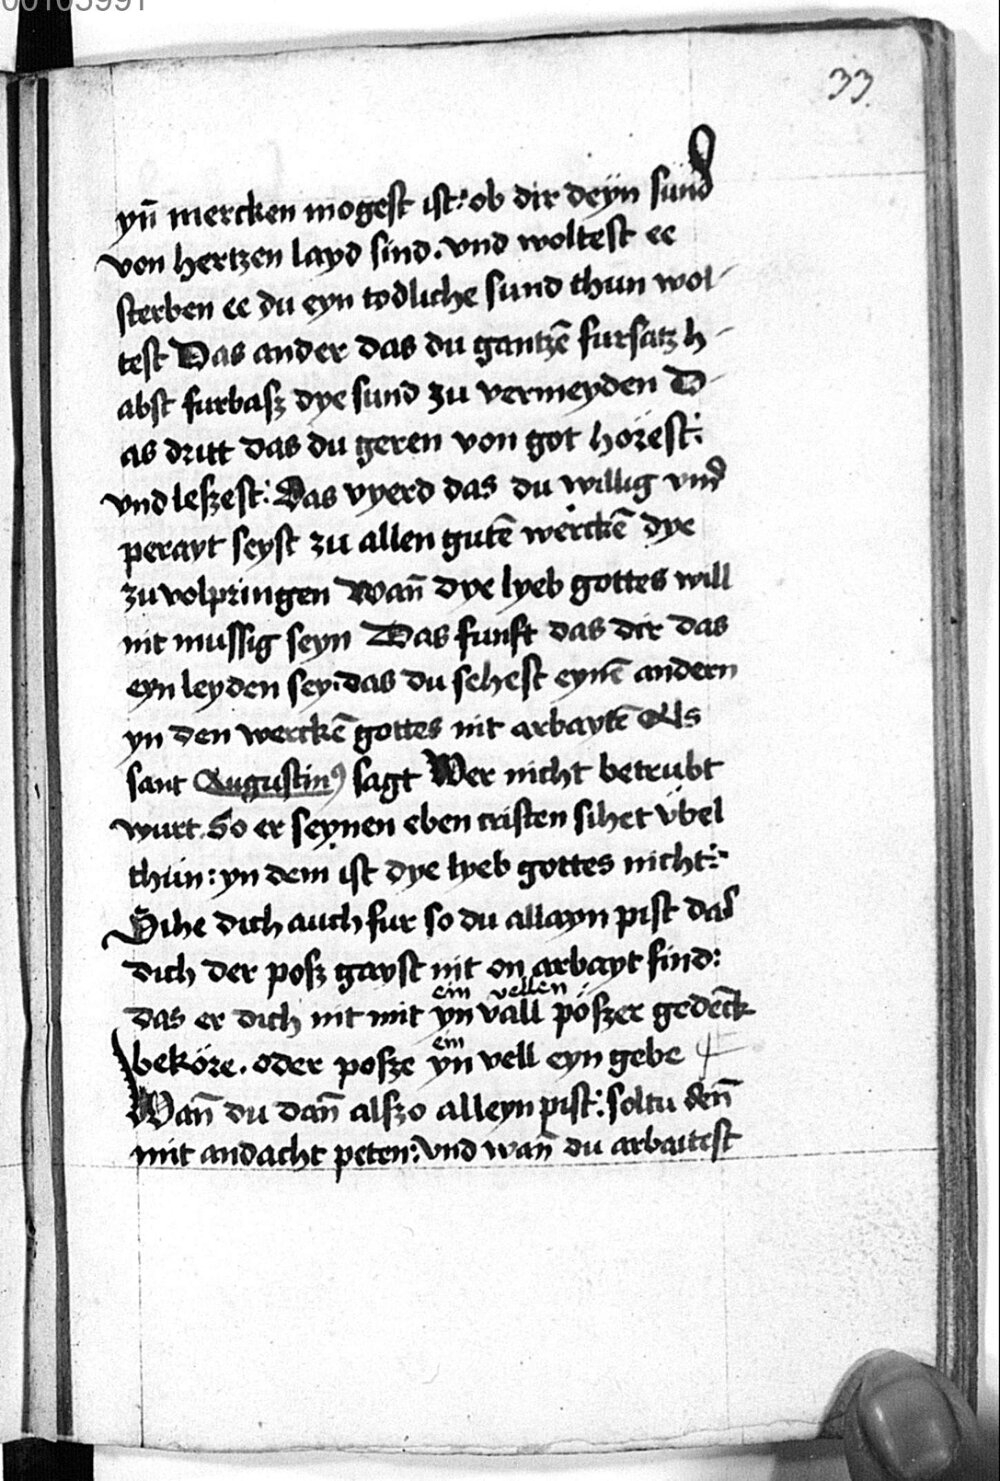 00103991
33
yn̄ mercken mogest ist: ob dir deyn sünd
von hertzen layd sind. vnd woltest ee
sterben ee du eyn todliche sund thun wol-
test Das ander das du gantzē fursatz h-
abst furbasz dye sund zu vermeyden D-
as dritt das du geren von got hörest:
vnd leszest: Das vyerd das du willig vnd
perayt seyst zu allen gutē werckē dye
zu volpringen Wan̄ dye lyeb gottes will
nit mussig seyn Das funft das dir das
eyn leyden sey: das du sehest eynē andern
yn den werckē gottes nit arbaytē Als
sant Augustinꝰ sagt Wer nicht betrubt
wurt. So er seynen eben cristen sihet vbel
thün: yn dem ist dye lyeb gottes nicht:
Sihe dich auch fur so du allayn pist das
dich der posz gayst nit on arbayt find:
ein vellen
das er dich nit mit yn vall pöszer gedēck
ein
beköre. oder posze yn vell eyn gebe
Wan̄ du dan̄ alszo alleyn pist: soltu den̄
mit andacht peten: vnd wan̄ du arbaitest